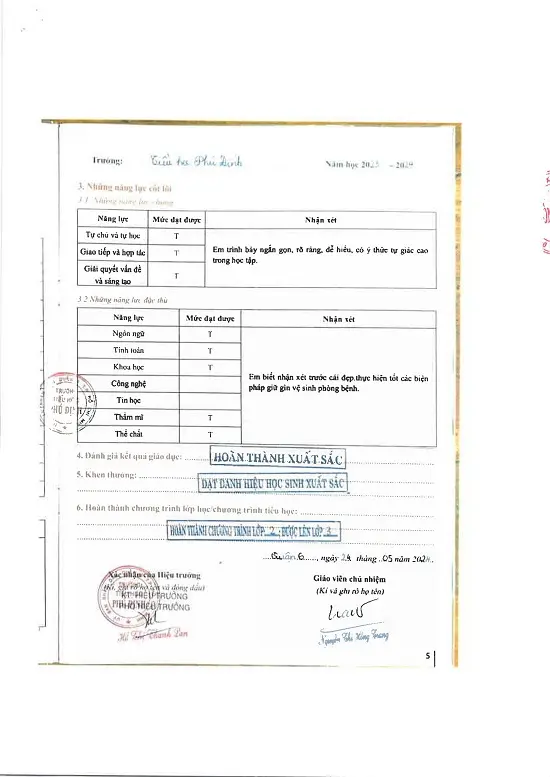 Trường: Tiểu học Phú Định Năm học 2023 - 2024
3. Những năng lực cốt lõi
3.1 Những năng lực chung
Năng lực Mức đạt được Nhận xét
Tự chủ và tự học T
Giao tiếp và hợp tác T
Giải quyết vấn đề và sáng tạo T
Em trình bày ngắn gọn, rõ ràng, dễ hiểu, có ý thức tự giác cao
trong học tập.
3.2 Những năng lực đặc thù
Năng lực Mức đạt được Nhận xét
Ngôn ngữ T
Tính toán T
Khoa học T
Công nghệ
Tin học
Thẩm mĩ T
Thể chất T
Em biết nhận xét trước cái đẹp,thực hiện tốt các biện
pháp giữ gìn vệ sinh phòng bệnh.
4. Đánh giá kết quả giáo dục: HOÀN THÀNH XUẤT SẮC
5. Khen thưởng:
ĐẠT DANH HIỆU HỌC SINH XUẤT SẮC
6. Hoàn thành chương trình lớp học/chương trình tiểu học:
HOÀN THÀNH CHƯƠNG TRÌNH LỚP 2 - ĐƯỢC LÊN LỚP 3
Quận 6, ngày 24 tháng 05 năm 2024
Xác nhận của Hiệu trưởng
(Kí, ghi rõ họ tên và đóng dấu)
KT. HIỆU TRƯỞNG
PHÓ HIỆU TRƯỞNG
Hồ Thị Thanh Lan
Giáo viên chủ nhiệm
(Kí và ghi rõ họ tên)
Nguyễn Thị Hồng Trang
5